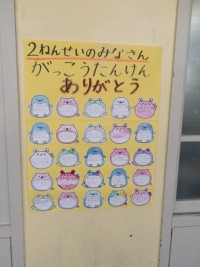 2ねんせいのみなさん
がっこうたんけん
ありがとう